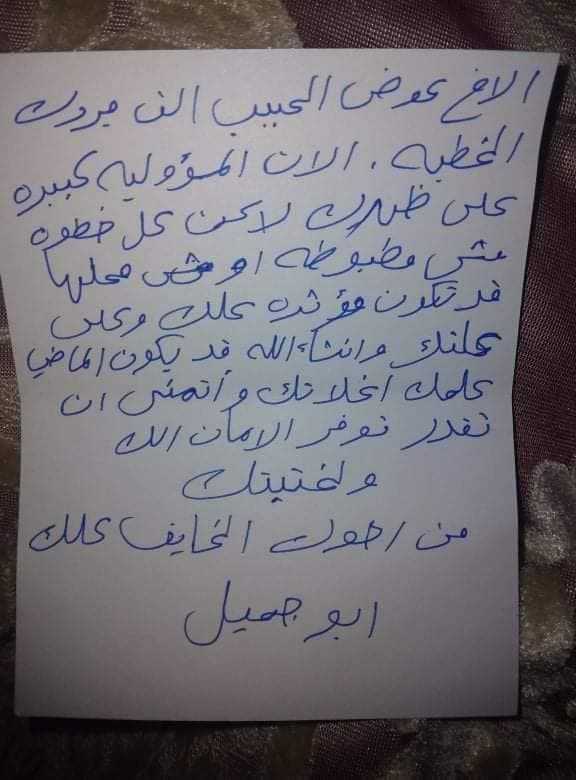 الاخ عوض الحبيب الف مبروك
الخطبه . الان المسؤوليه كبيره
على ظهرك لا عن كل خطوه
مش مظبوطه او مش محلها
قد تكون مؤثره علك وعلى
علتك وانشاءالله قد يكون الماضي
علمك أخلاقك وأتمنى ان
تقدر توفر الامان الك
ولختيتك
من اخوك الخايف علك
ابو جميل